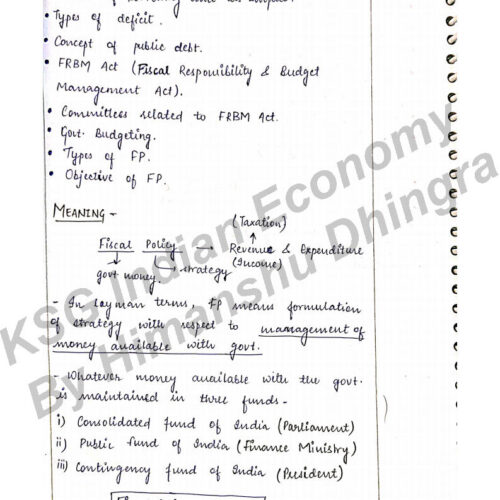 • Types of deficit.
• Concept of public debt.
• FRBM Act (Fiscal Responsibility & Budget
Management Act).
• Committees related to FRBM Act.
• Govt. Budgeting.
• Types of FP.
• Objective of FP.
MEANING -
(Taxation)
Fiscal Policy → Revenue & Expenditure
(Income)
govt money. strategy
- In layman terms, FP means formulation
of strategy with respect to management of
money available with govt.
- Whatever money available with the govt.
is maintained in three funds -
i) Consolidated fund of India (Parliament)
ii) Public fund of India (Finance Ministry)
iii) Contingency fund of India (President)
KSG Indian Economy
By Himanshu Dhingra